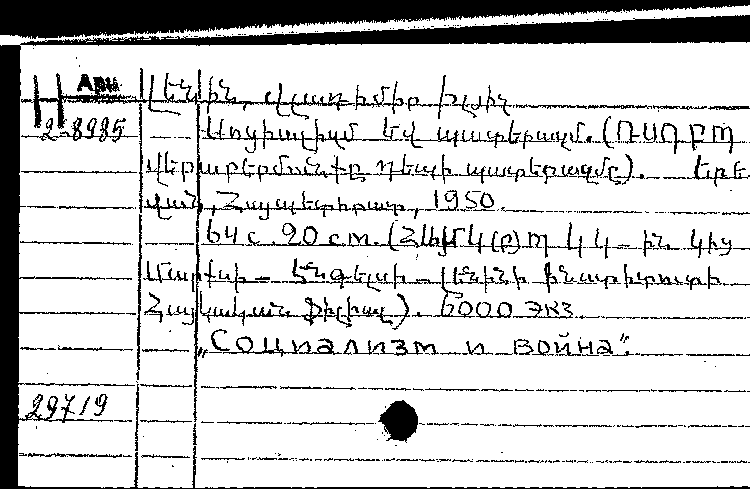 Арм
Լենին, Վլադիմիր Իլյիչ
2-8985 Սոցիալիզմ եվ պատերազմ. (ՌՍԴԲՊ
վերաբերմունքը դեպի պատերազմը). Երե-
վան, Հայպետհրատ, 1950.
64 с. 20 см. ՀԿ(բ)Պ ԿԿ-ին կից
Մարքսի-Էնգելսի-Լենինի ինստիտուտի
Հայկական ֆիլիալ). 6000 экз.
„Социализм и война".
29719